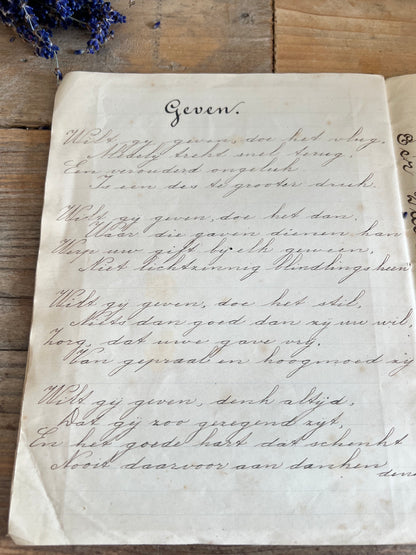 Geven.
Wilt gy geven, doe het vlug,
Medely trekt snel terug.
Een verouderd ongeluk
Is een des te grooter druk.
Wilt gy geven, doe het dan,
Waar die gaven dienen kan
Werp uw gift by elk geween,
Niet lichtzinnig blindlings heen
Wilt gij geven, doe het stil,
Niets dan goed dan zy uw wil,
Zorg, dat uwe gave vry,
Van gepraal en hoogmoed zij
Wilt gij geven, denk altijd,
Dat gij zoo gezegend zyt,
En het goede hart dat schenkt
Nooit daarvoor aan danken